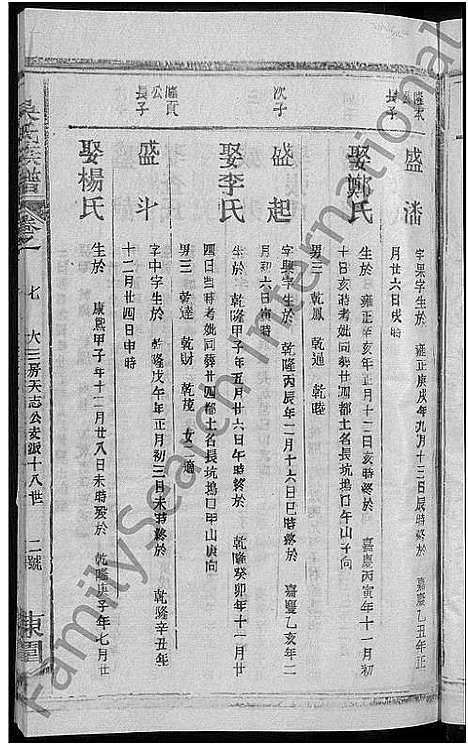 隆末公長子
盛潘
字果字生於 雍正庚戌年九月十三日辰時終於 嘉慶乙丑年正
月廿六日戌時
娶鄭氏
生於 雍正辛亥年正月十二日亥時終於 嘉慶丙寅年十一月初
十日亥時考妣同葬廿四都土名長坑塢口午山子向
男三 乾鳳 乾通 乾陸
次子
盛起
字興字生於 乾隆丙辰年二月十六日巳時終於 嘉慶乙亥年二
月初六日寅時
娶李氏
生於 乾隆甲子年五月廿六日午時終於 乾隆癸卯年十一月廿
四日當時考妣同葬廿四都土名長坑塢口甲山庚向
男三 乾達 乾財 乾茂 女一適
隆貢公長子
盛斗
字中字生於 乾隆戊午年正月初三日未時終於 乾隆辛丑年
十二月廿四日申時
娶楊氏
生於 康熙甲子年十二月廿八日未時歿於 乾隆庚子年七月廿
吳氏宗譜 卷之一 七 大三房天志公支派十八世 二號 東雷
FamilySearch International